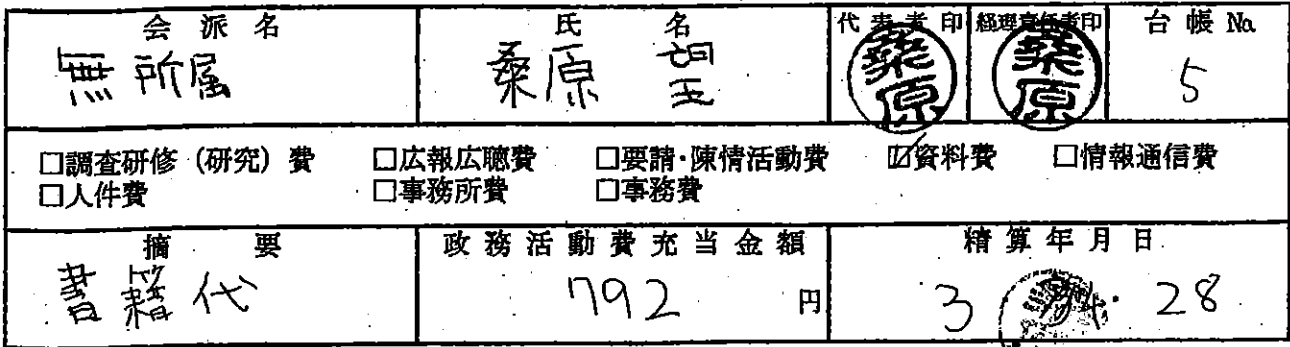 会派名 氏名 代表者印 経理責任者印 台帳No.
無所属 桑原 望 桑原 桑原 5
□調査研修（研究）費 □広報広聴費 □要請・陳情活動費 ☑資料費 □情報通信費
□人件費 □事務所費 □事務費
摘要 政務活動費充当金額 精算年月日
書籍代 792 円 3 28